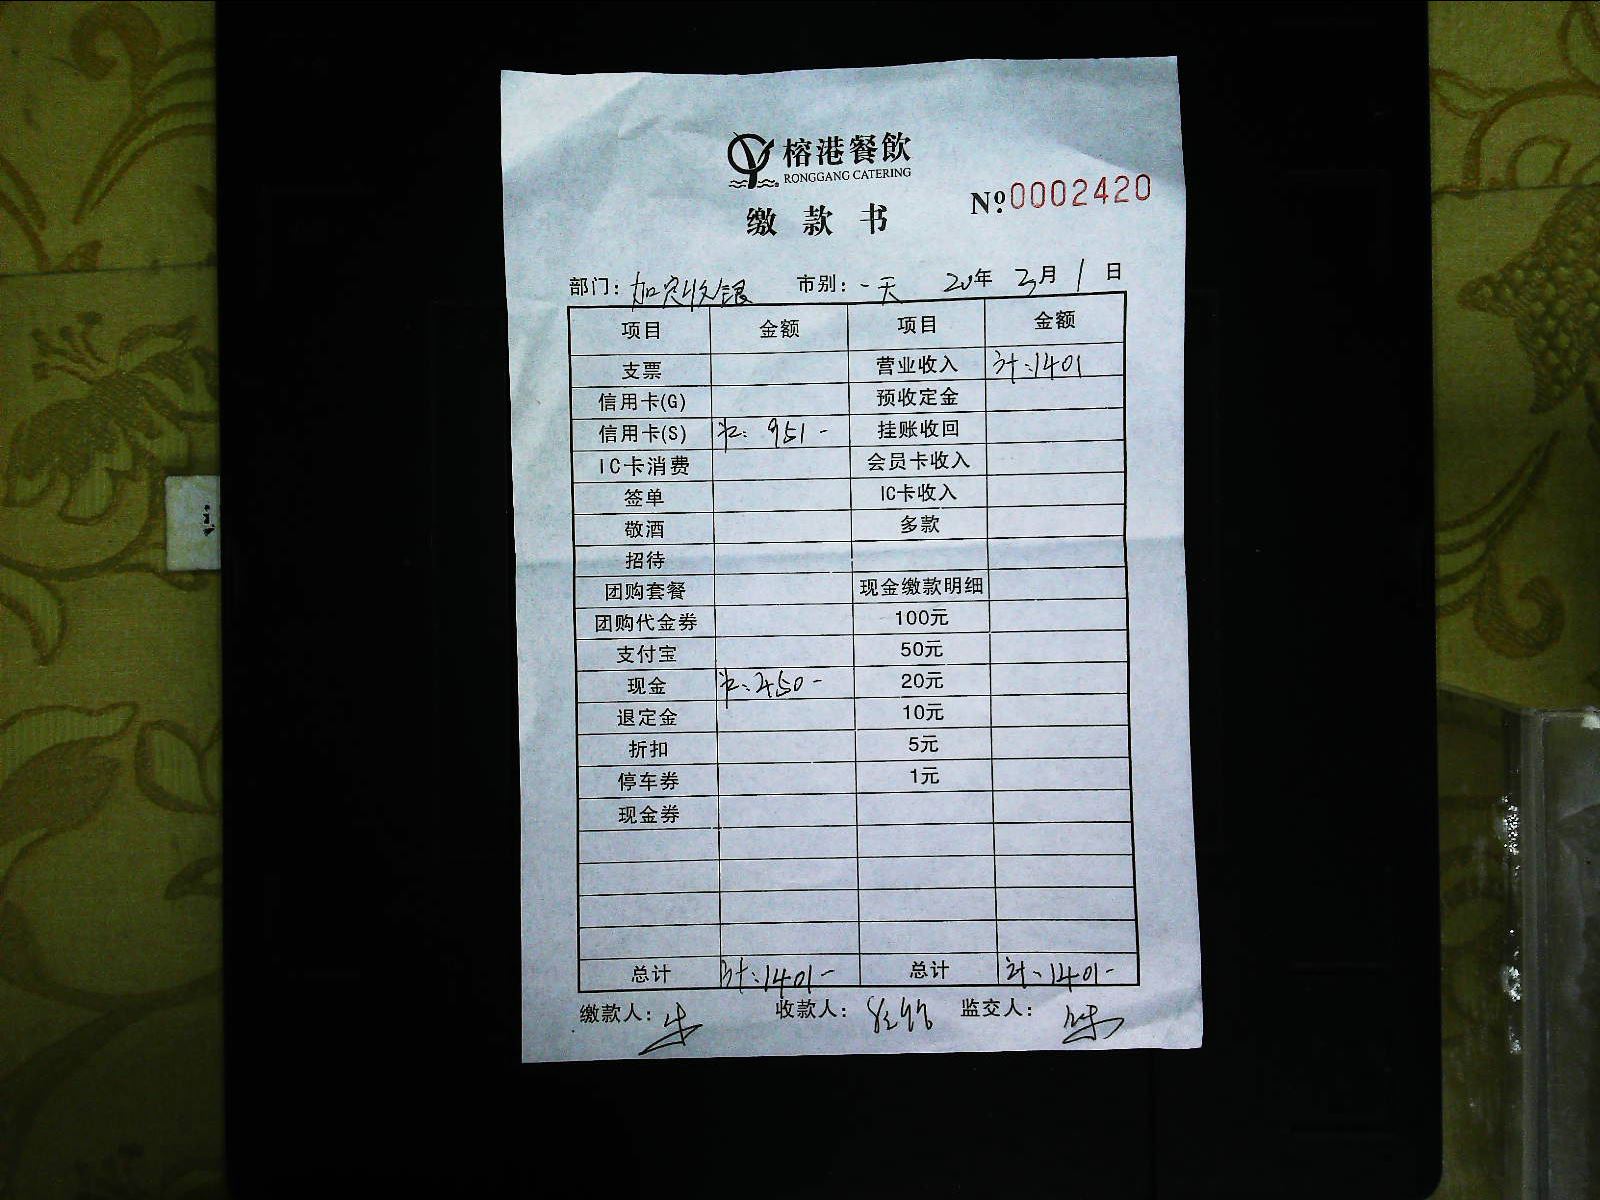 榕港餐飲
RONGGANG CATERING
缴款书
№0002420
部门：加定收银 市别：一天 20年 3月 1日
项目 金额 项目 金额
支票 营业收入 计：1401
信用卡(G) 预收定金
信用卡(S) 951- 挂账收回
IC卡消费 会员卡收入
签单 IC卡收入
敬酒 多款
招待
团购套餐 现金缴款明细
团购代金券 100元
支付宝 50元
现金 450- 20元
退定金 10元
折扣 5元
停车券 1元
现金券
总计 计：1401- 总计 计：1401-
缴款人： 收款人： 监交人：